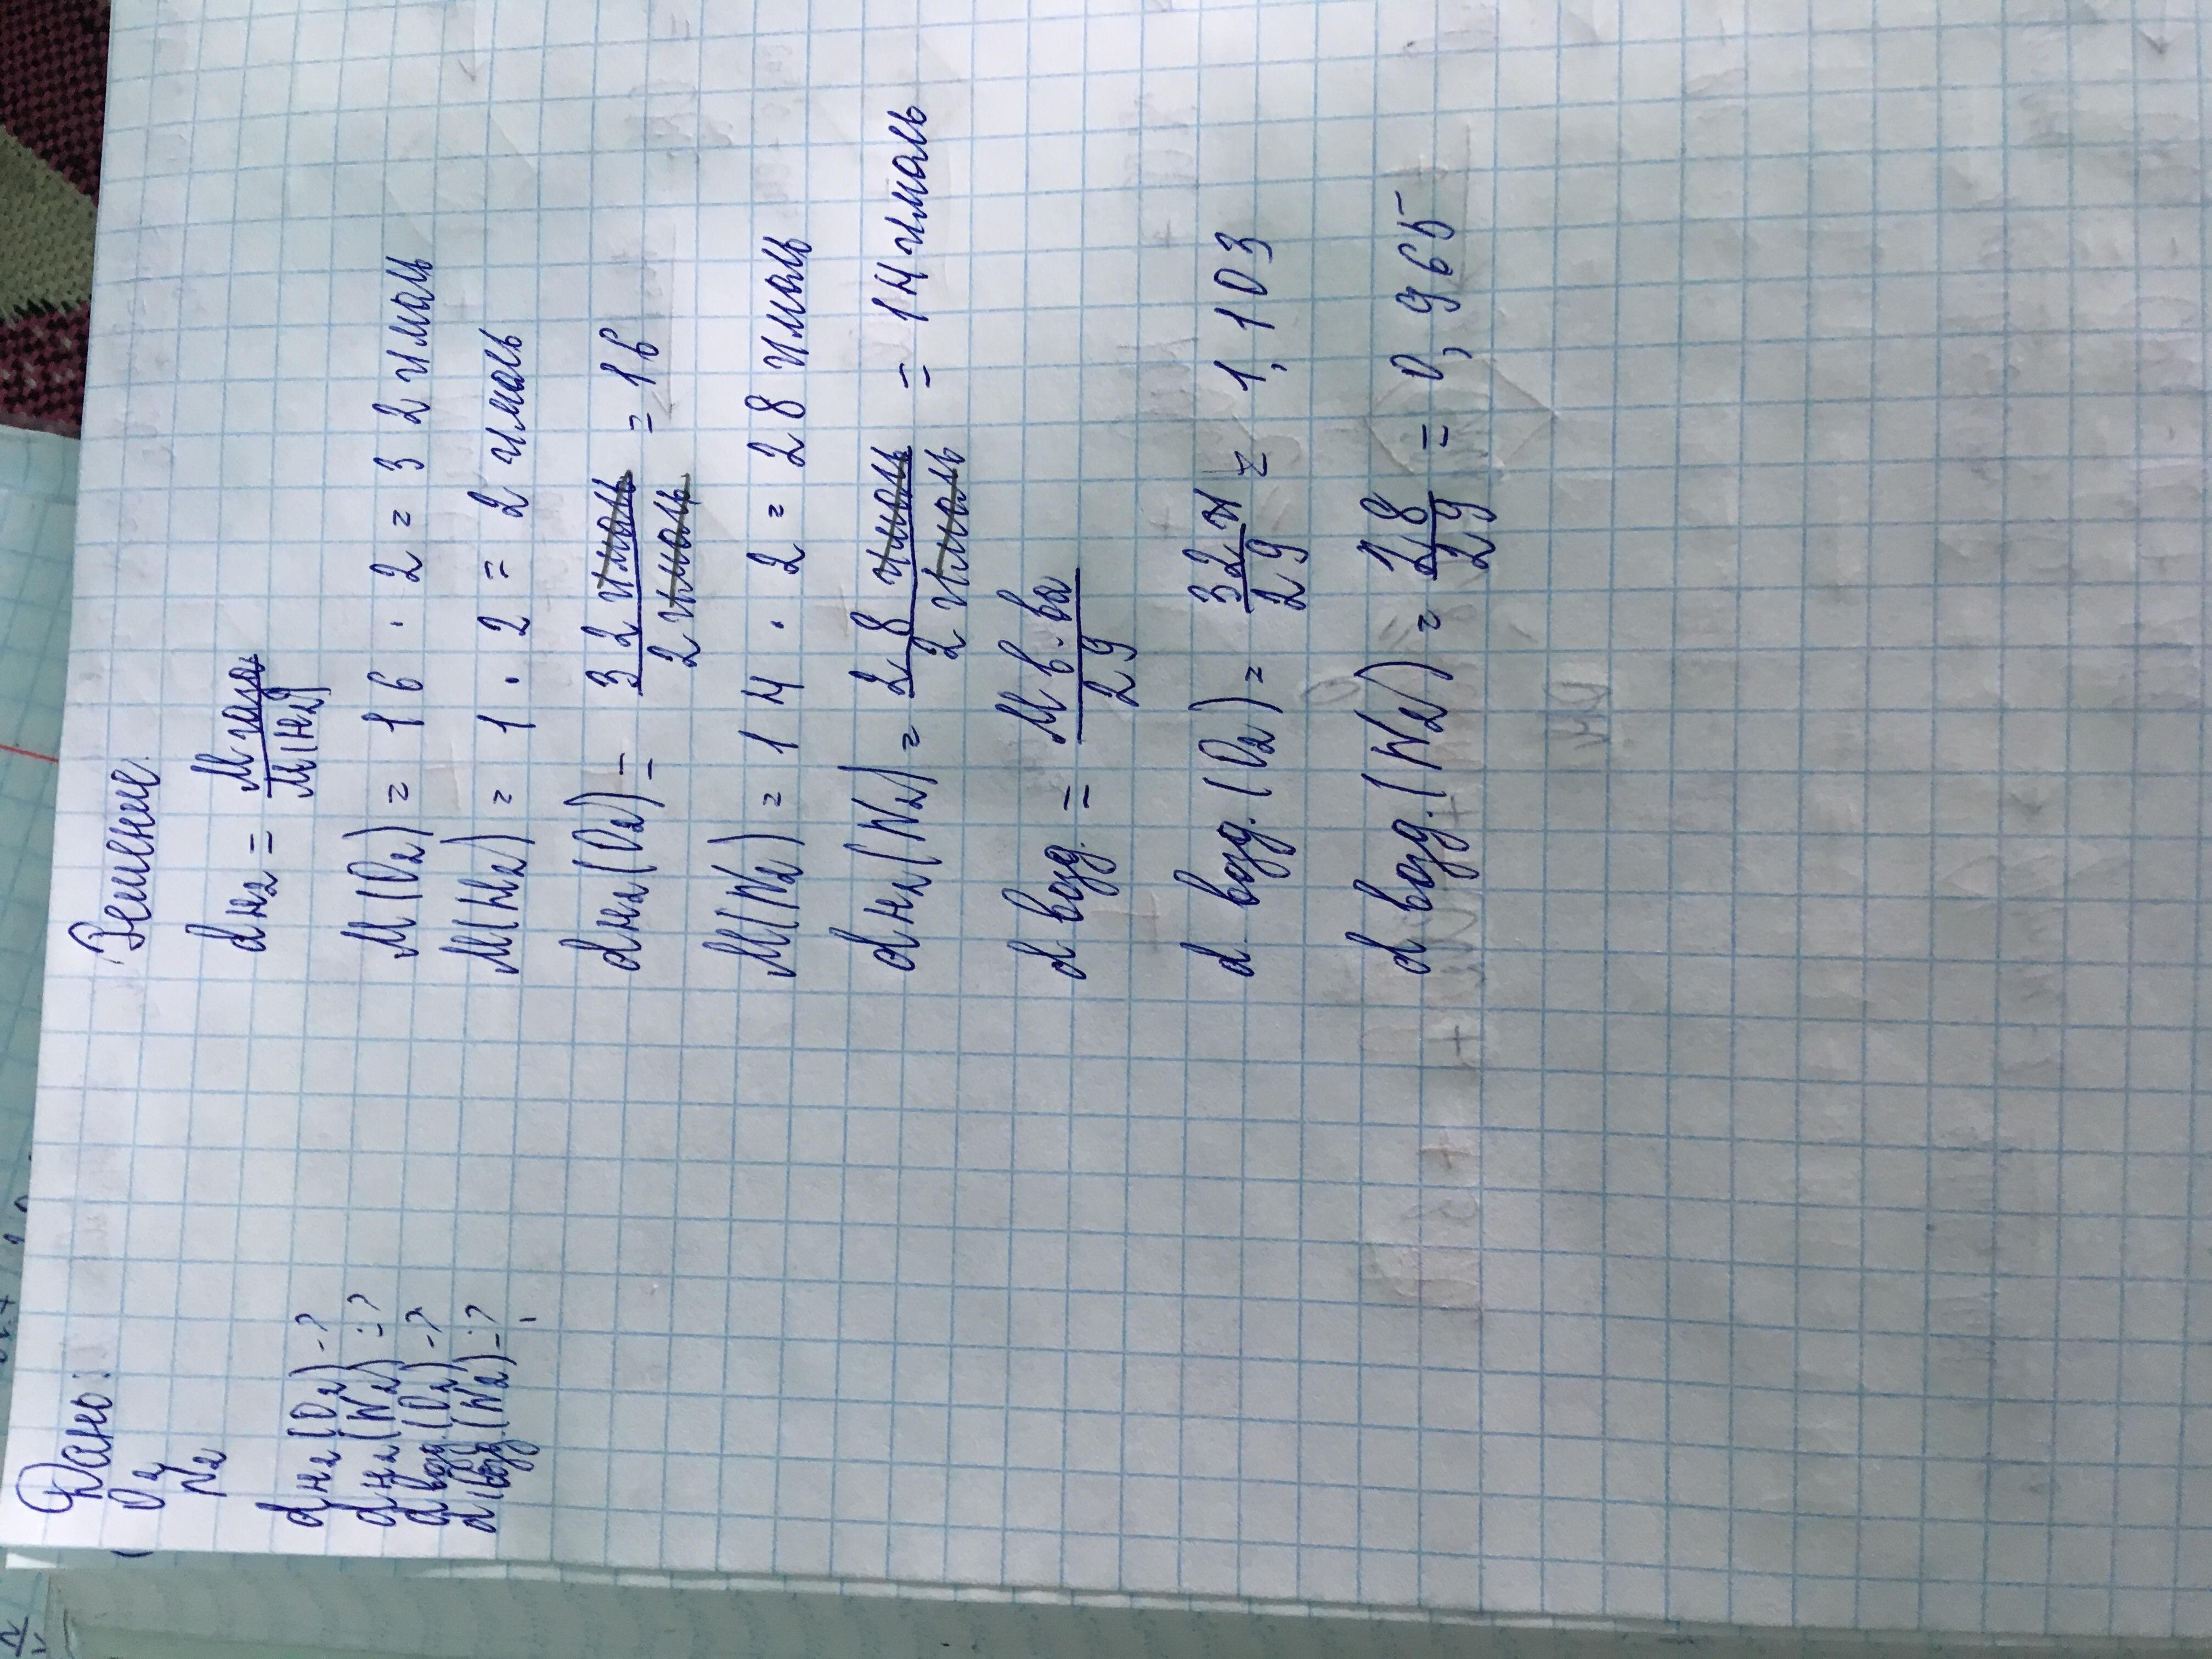 Дано:
O2
N2
dн2(O2) -?
dн2(N2) -?
d возд.(O2) -?
d возд.(N2) -?
Решение.
dн2 = M газа / M(H2)
M(O2) = 16 · 2 = 32 г/моль
M(H2) = 1 · 2 = 2 г/моль
dн2(O2) = 32 г/моль / 2 г/моль = 16
M(N2) = 14 · 2 = 28 г/моль
dн2(N2) = 28 г/моль / 2 г/моль = 14 г/моль
d возд. = M в-ва / 29
d возд.(O2) = 32 / 29 = 1,103
d возд.(N2) = 28 / 29 = 0,965